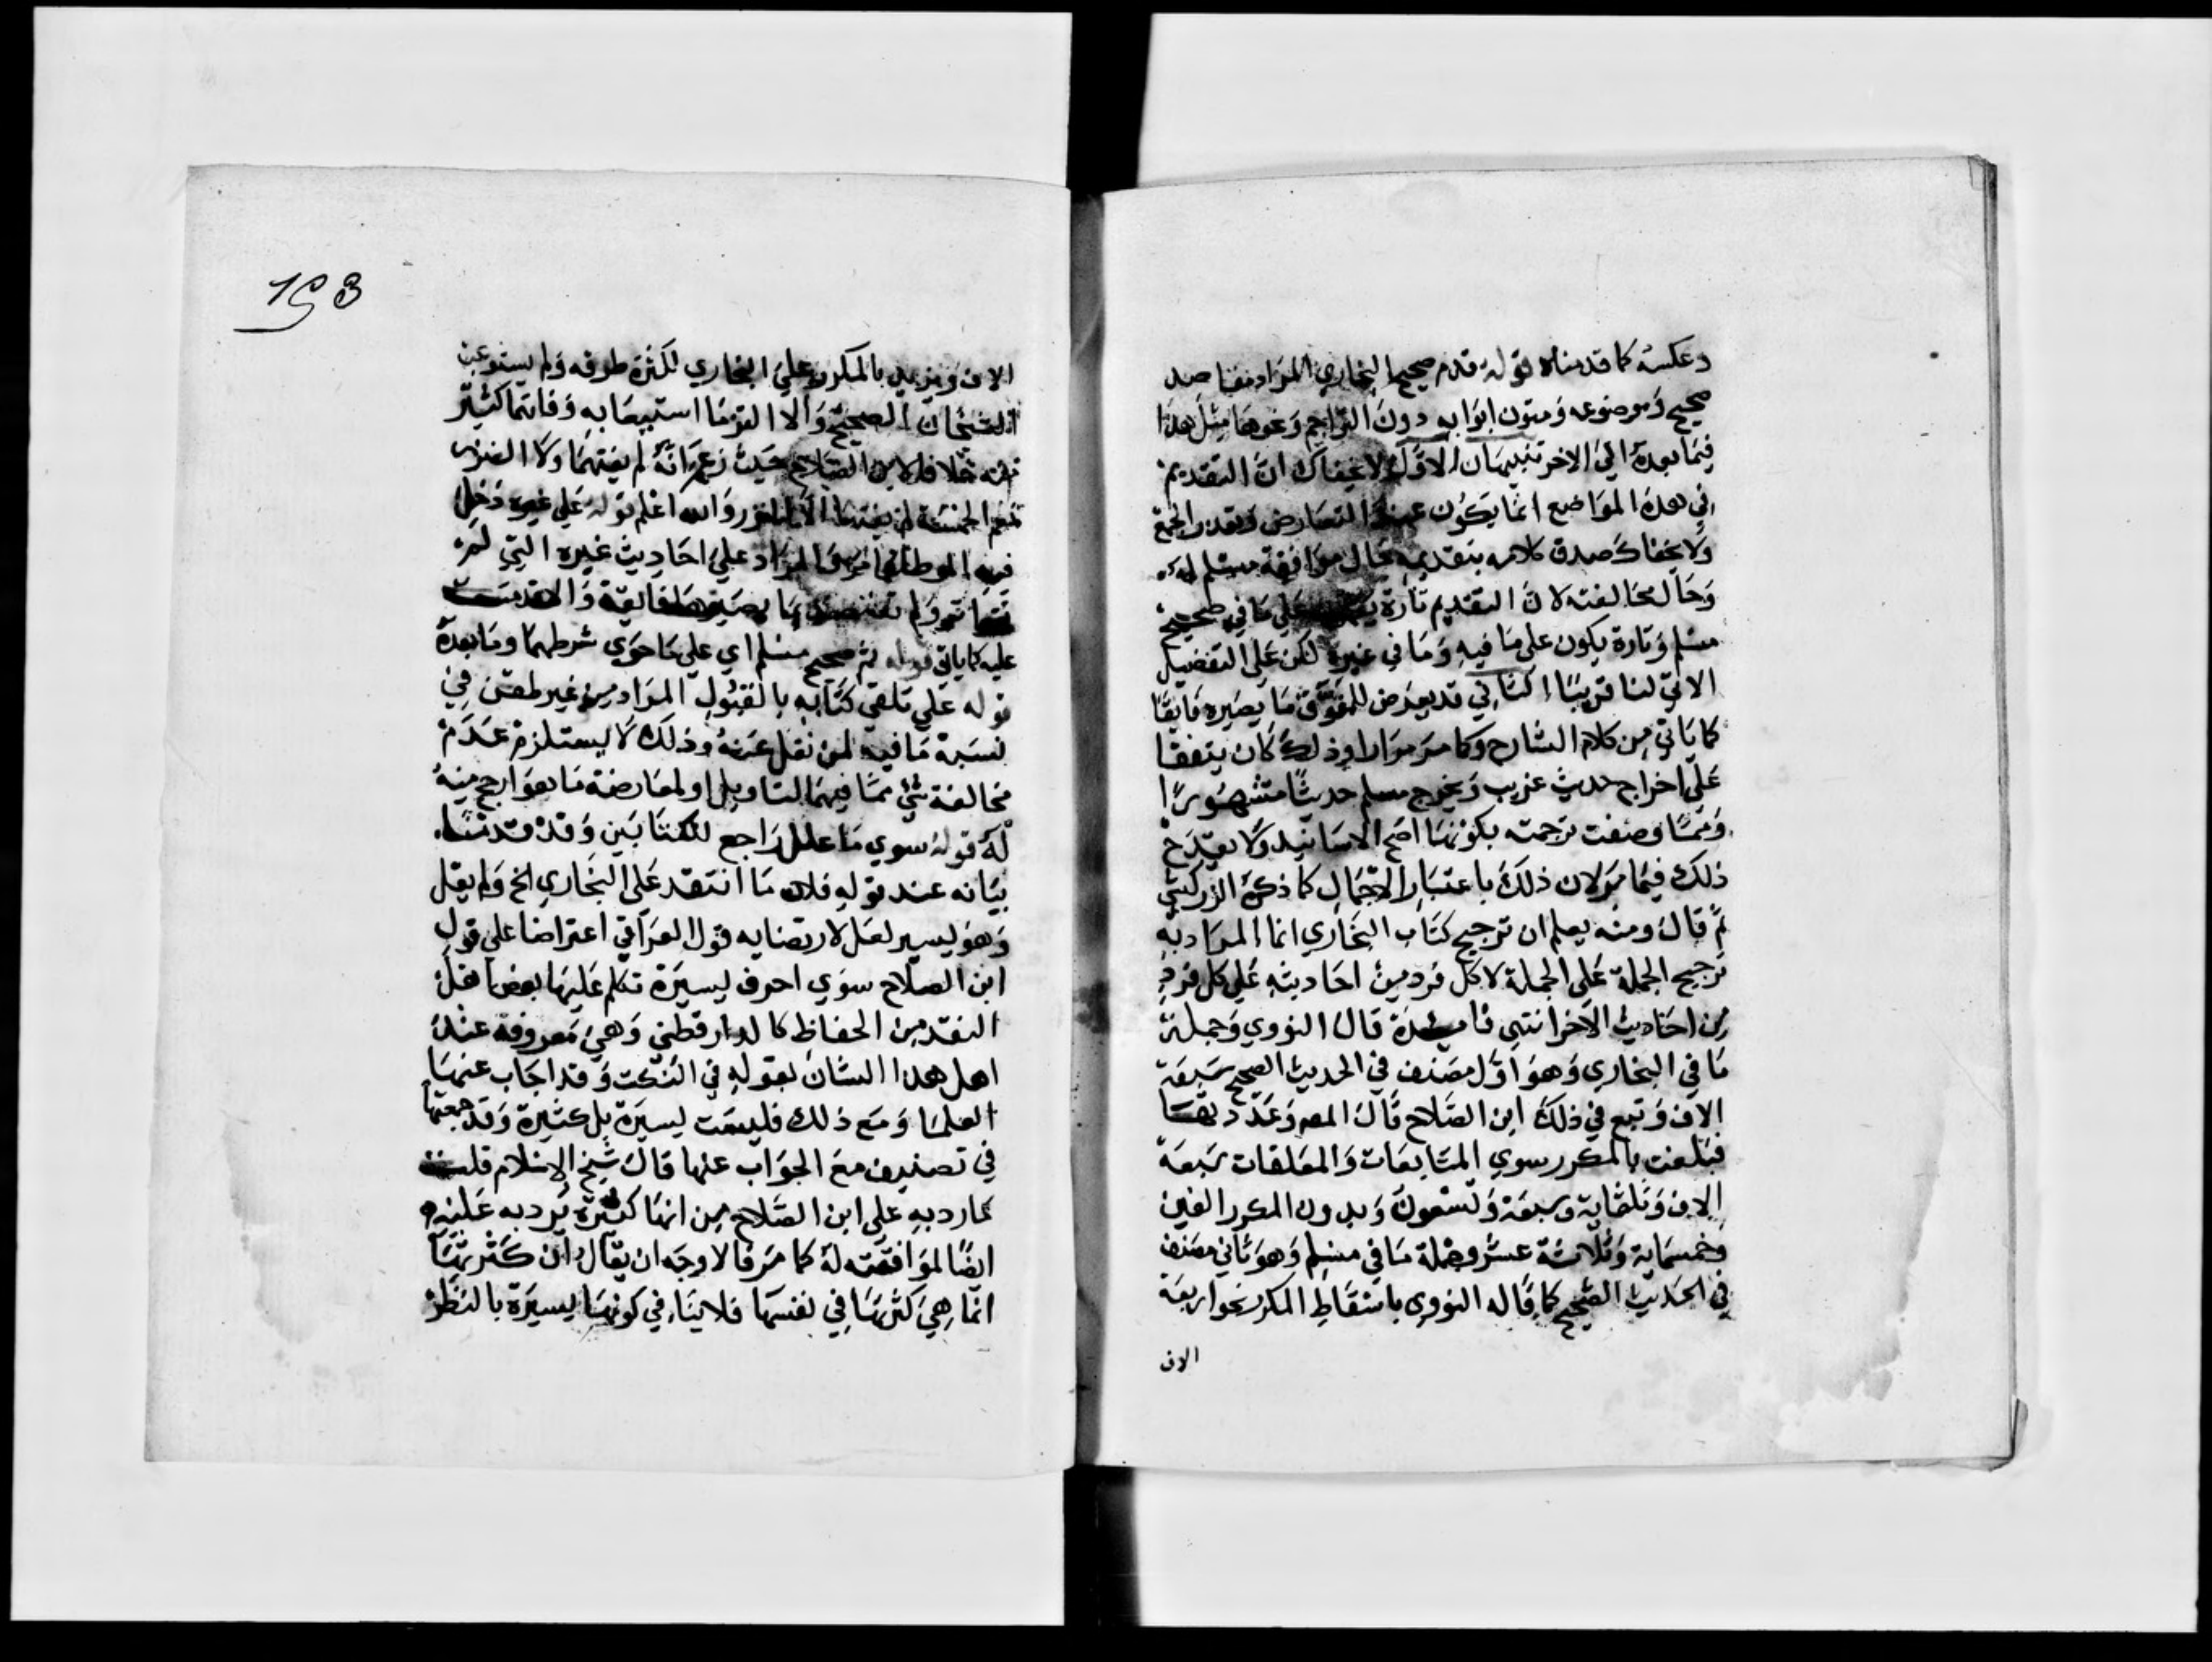 وعكسه كما قدمناه قوله قدم صحيح البخاري المراد مقاصد
صحيحه وموضوعه ومتون ابوابه دون التراجم ونحوها مثل هذا
فيما بعده الى الاخر تنبيهان الاول لا يخفاك ان التقديم
في هذه المواضع انما يكون عند التعارض وتعذر الجمع
ولا يخفاك صدق كلامه بتقديمه حال موافقة مسلم له
وحال مخالفته لان التقديم تارة يكون على ما في صحيح
مسلم وتارة يكون على ما فيه وما في غيره لكن على التفضيل
الاتي لنا قريبا الثاني قد يعرض للمفوق ما يصيره فايقا
كما ياتي من كلام الشارح وكما مر مرارا وذلك كان يتفقا
على اخراج حديث غريب ويخرج مسلم حديثا مشهورا
ومما وصفت ترجمته بكونها اصح الاسانيد ولا يقدح
ذلك فيما مر لان ذلك باعتبار الاجمال كما ذكره الزركشي
ثم قال ومنه يعلم ان ترجيح كتاب البخاري انما المراد به
ترجيح الجملة على الجملة لا كل فرد من احاديثه على كل فرد
من احاديث الاخر انتهى فايدة قال النووي وجملة
ما في البخاري وهو اول مصنف في الحديث الصحيح سبعة
الاف وتبع في ذلك ابن الصلاح قال المص وعددتها
فبلغت بالمكرر سوى المتابعات والمعلقات سبعة
الاف وثلثماية وسبعة وتسعون وبدون المكرر الفين
وخمسماية وثلاثة عشر وجملة ما في مسلم وهو ثاني مصنف
في الحديث الصحيح كما قاله النووي باسقاط المكرر نحو اربعة
الاف
198
الاف ويزيد بالمكرر على البخاري لكثرة طرقه ولم يستوعب
الشيخان الصحيح ولا التزما استيعابه وفاتهما كثير
منه خلافا لابن الصلاح حيث زعم انه لم يفتهما ولا
نعم الخمسة لم يفتها الا النزر والله اعلم قوله على غيره دخل
فيه الموطا كما مر والمراد على احاديث غيره التي لم
ولم بما يصيرها فايقة والا قدمت
عليه كما ياتي قوله ثم صحيح مسلم اي على ما حوى شرطهما وما بعده
قوله على تلقي كتابه بالقبول المراد من غير طعن في
نسبة ما فيه لمن نقل عنه وذلك لا يستلزم عدم
مخالفة شي مما فيهما لتاويل او لمعارضة ما هو ارجح منه
له قوله سوى ما علل راجع للكتابين وقد قدمنا
بيانه عند قوله فلان ما انتقد على البخاري الخ ولم يقل
وهو يسير لعل لارتضايه قول العراقي اعتراضا على قول
ابن الصلاح سوى احرف يسيرة تكلم عليها بعض اهل
النقد من الحفاظ كالدارقطني وهي معروفة عند
اهل هذا الشان بقوله في النكت وقد اجاب عنها
العلما ومع ذلك فليست يسيرة بل كثيرة وقد جمعتها
في تصنيف مع الجواب عنها قال شيخ الاسلام قلت
كما رد به على ابن الصلاح من انها كثيرة يرد به عليه
ايضا لموافقته له كما مر فالاوجه ان يقال ان كثرتها
انما هي كثرتها في نفسها فلا ينافي كونها يسيرة بالنظر